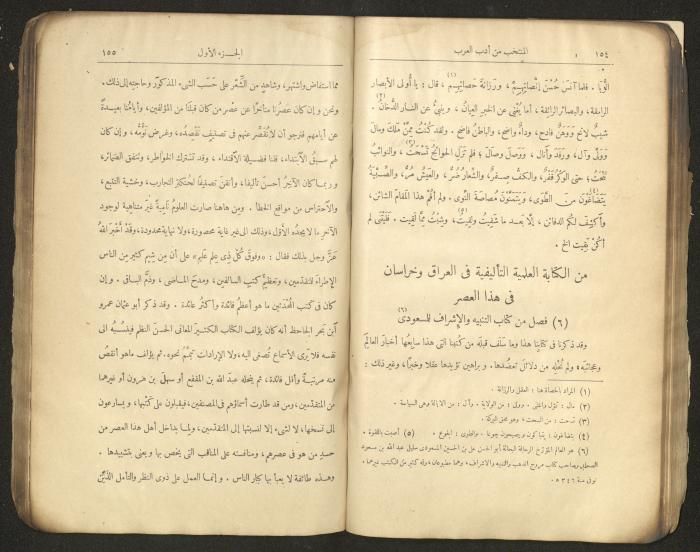 ١٥٤
المنتخب من أدب العرب
الدُّبا . فلما آنَس حُسْن إنصاتهم ، ورزانة حصاتهم (١) ، قال : يا أولى الأبصار
الرامقة ، والبصائر الرائقة ، أما يُغنى عن الخبر العِيانُ ، وينبئ عن النار الدُّخانُ !
شيبٌ لائح ووَهَنٌ فادح ، وداءٌ واضح ، والباطن فاضح . ولقد كُنتُ ممَّن مَلَك ومالَ
ووَلِىَ وآل ، ورفَد وأنال ، ووصَل وصال ؛ فلم تزل الجوائح تَسْحَتُ ، والنوائب
تَنْحَتُ ؛ حتى الوَكْرُ قَفْر ، والكفُّ صِفْر ، والشِّعارُ ضُرّ ، والعيش مُرّ ، والصِّبيةُ
يَتضاغُون من الطَّوَى ، ويتمنَّوْن مُصاصة النَّوى . ولم أقُم هذا المَقام الشائن ،
وأكشِف لكم الدفائن ، إلّا بعد ما شَقِيت ولُقيتُ ، وشِبْت مما لقِيت . فليتَنى لم
أكُنْ بَقِيت الخ .
من الكتابة العلمية التأليفية فى العراق وخراسان
فى هذا العصر
(٦) فصل من كتاب التنبيه والإشراف للمسعودى (٦)
وقد ذكرنا فى كتابنا هذا وما سَلَف قبلَه من كُتبنا التى هذا سابِعُها أخبارَ العالَم
وعجائبَه، ولم نُخْلِه من دلائلَ تعضُدها ، و براهين تؤيدها عقلا وخبرا، وغير ذلك :
(١) المراد بالحصاة هنا : العقل والرزانة .
(٢) مال : تموّل واغتنى . وولى : من الولاية . وآل : من الإيالة وهى السياسة .
(٣) تسحت : من السحت، وهو محق البركة .
(٤) يتضاغون : يتباكون ويصيحون جوعا . والطوى : الجوع . (٥) أصبت باللقوة .
(٦) هو العالم المؤرّخ الرحالة البحاثة أبو الحسن على بن الحسين المسعودى سليل عبد الله بن مسعود
الصحابى وصاحب كتاب مروج الذهب والتنبيه والإشراف، وهما مطبوعان، وله كثير من الكتب غيرهما .
توفى سنة ٣٤٦ هـ
الجزء الأول
١٥٥
مما استفاض واشتهر، وشاهدٍ من الشِّعْر على حَسَب الشىء المذكور وحاجته إلى ذلك .
ونحن وإن كان عَصْرُنا متأخرًا عن عصْر من كان قبلَنا من المؤلفين، وأيامُنا بعيدةً
عن أيامهم فنرجو أن لا نُقصِّر عنهم فى تصنيف نقْصِدُه، وغرض نَؤُمُّه ، وإن كان
لهم سَبْقُ الابتداء، فلنا فضيلةُ الاقتداء، وقد تشترك الخواطر، وتتفق الضمائر،
وربما كان الآخِرُ أحسنَ تأليفا ، وأتقنَ تصنيفًا لحُنْكة التجارب ، وخشية التتبع ،
والاحتراس من مواقع الخطأ . ومن هاهنا صارت العلوم ناميةً غيرَ متناهية لوجود
الآخر ما لا يجدُه الأوّل، وذلك إلى غير غاية محصورة، ولا نهاية محدودة، وقَدْ أَخْبر اللهُ
عَزَّ وجل بذلك فقال : «وفَوقَ كُلِّ ذِى عِلمٍ عَلِيمٌ» على أن مِن شِيَم كثير من الناس
الإطراءَ للمتقدّمين، وتعظيمَ كتب السالفين، ومدحَ الماضى ، وذَمَّ الباقى . وإن
كان فى كتب المُحْدَثين ما هو أعظمُ فائدة وأكثرُ عائدة . وقد ذكر أبو عثمان عمرو
ابن بَحْر الجاحظ أنه كان يؤلف الكتاب الكثيرَ المعانى الحسنَ النظم فينسُبُه الى
نفسه فلا يرى الأسماع تُصغى اليه، ولا الإرادات تَيَمَّمُ نحوه، ثم يؤلف ما هو أنقصُ
منه مرتبةً وأقل فائدة ، ثم ينحله عبدَ الله بن المقفع أو سهلَ بن هٰرون أو غيرهما
من المتقدّمين، ومن قد طارت أسماؤهم فى المصنفين، فيُقبلون على كَتْبها، ويسارعون
إلى نسخها، لا لشىء إلا لنسبتها إلى المتقدّمين، ولِما يداخل أهل هذا العصر من
حسد من هو فى عصرهم ، ومنافسته على المناقب التى يخص بها ويعنى بتشييدها .
وهذه طائفة لا يعبأ بها كبار الناس . وإنما العمل على ذوى النظر والتأمل الذين